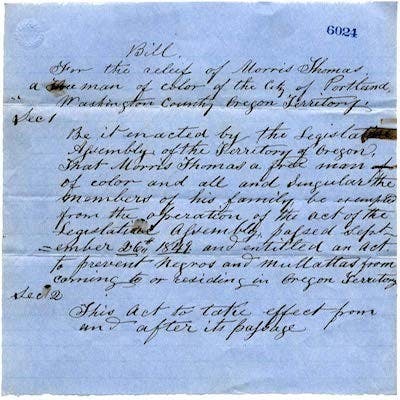 6024
Bill
For the releif of Morris Thomas
a man of color of the City of Portland,
Washington County Oregon Territory.
Sec 1
Be it enacted by the Legislative
Assembly of the Territory of Oregon,
That Morris Thomas a free man
of color and all and Singular the
members of his family be exempted
from the operation of the act of the
Legislative Assembly, passed Sept-
ember 26th 1849 and entitled an act
to prevent Negros and Mullattas from
comming to or residing in Oregon Territory
Sec 2
This Act to take effect from
and after its passage